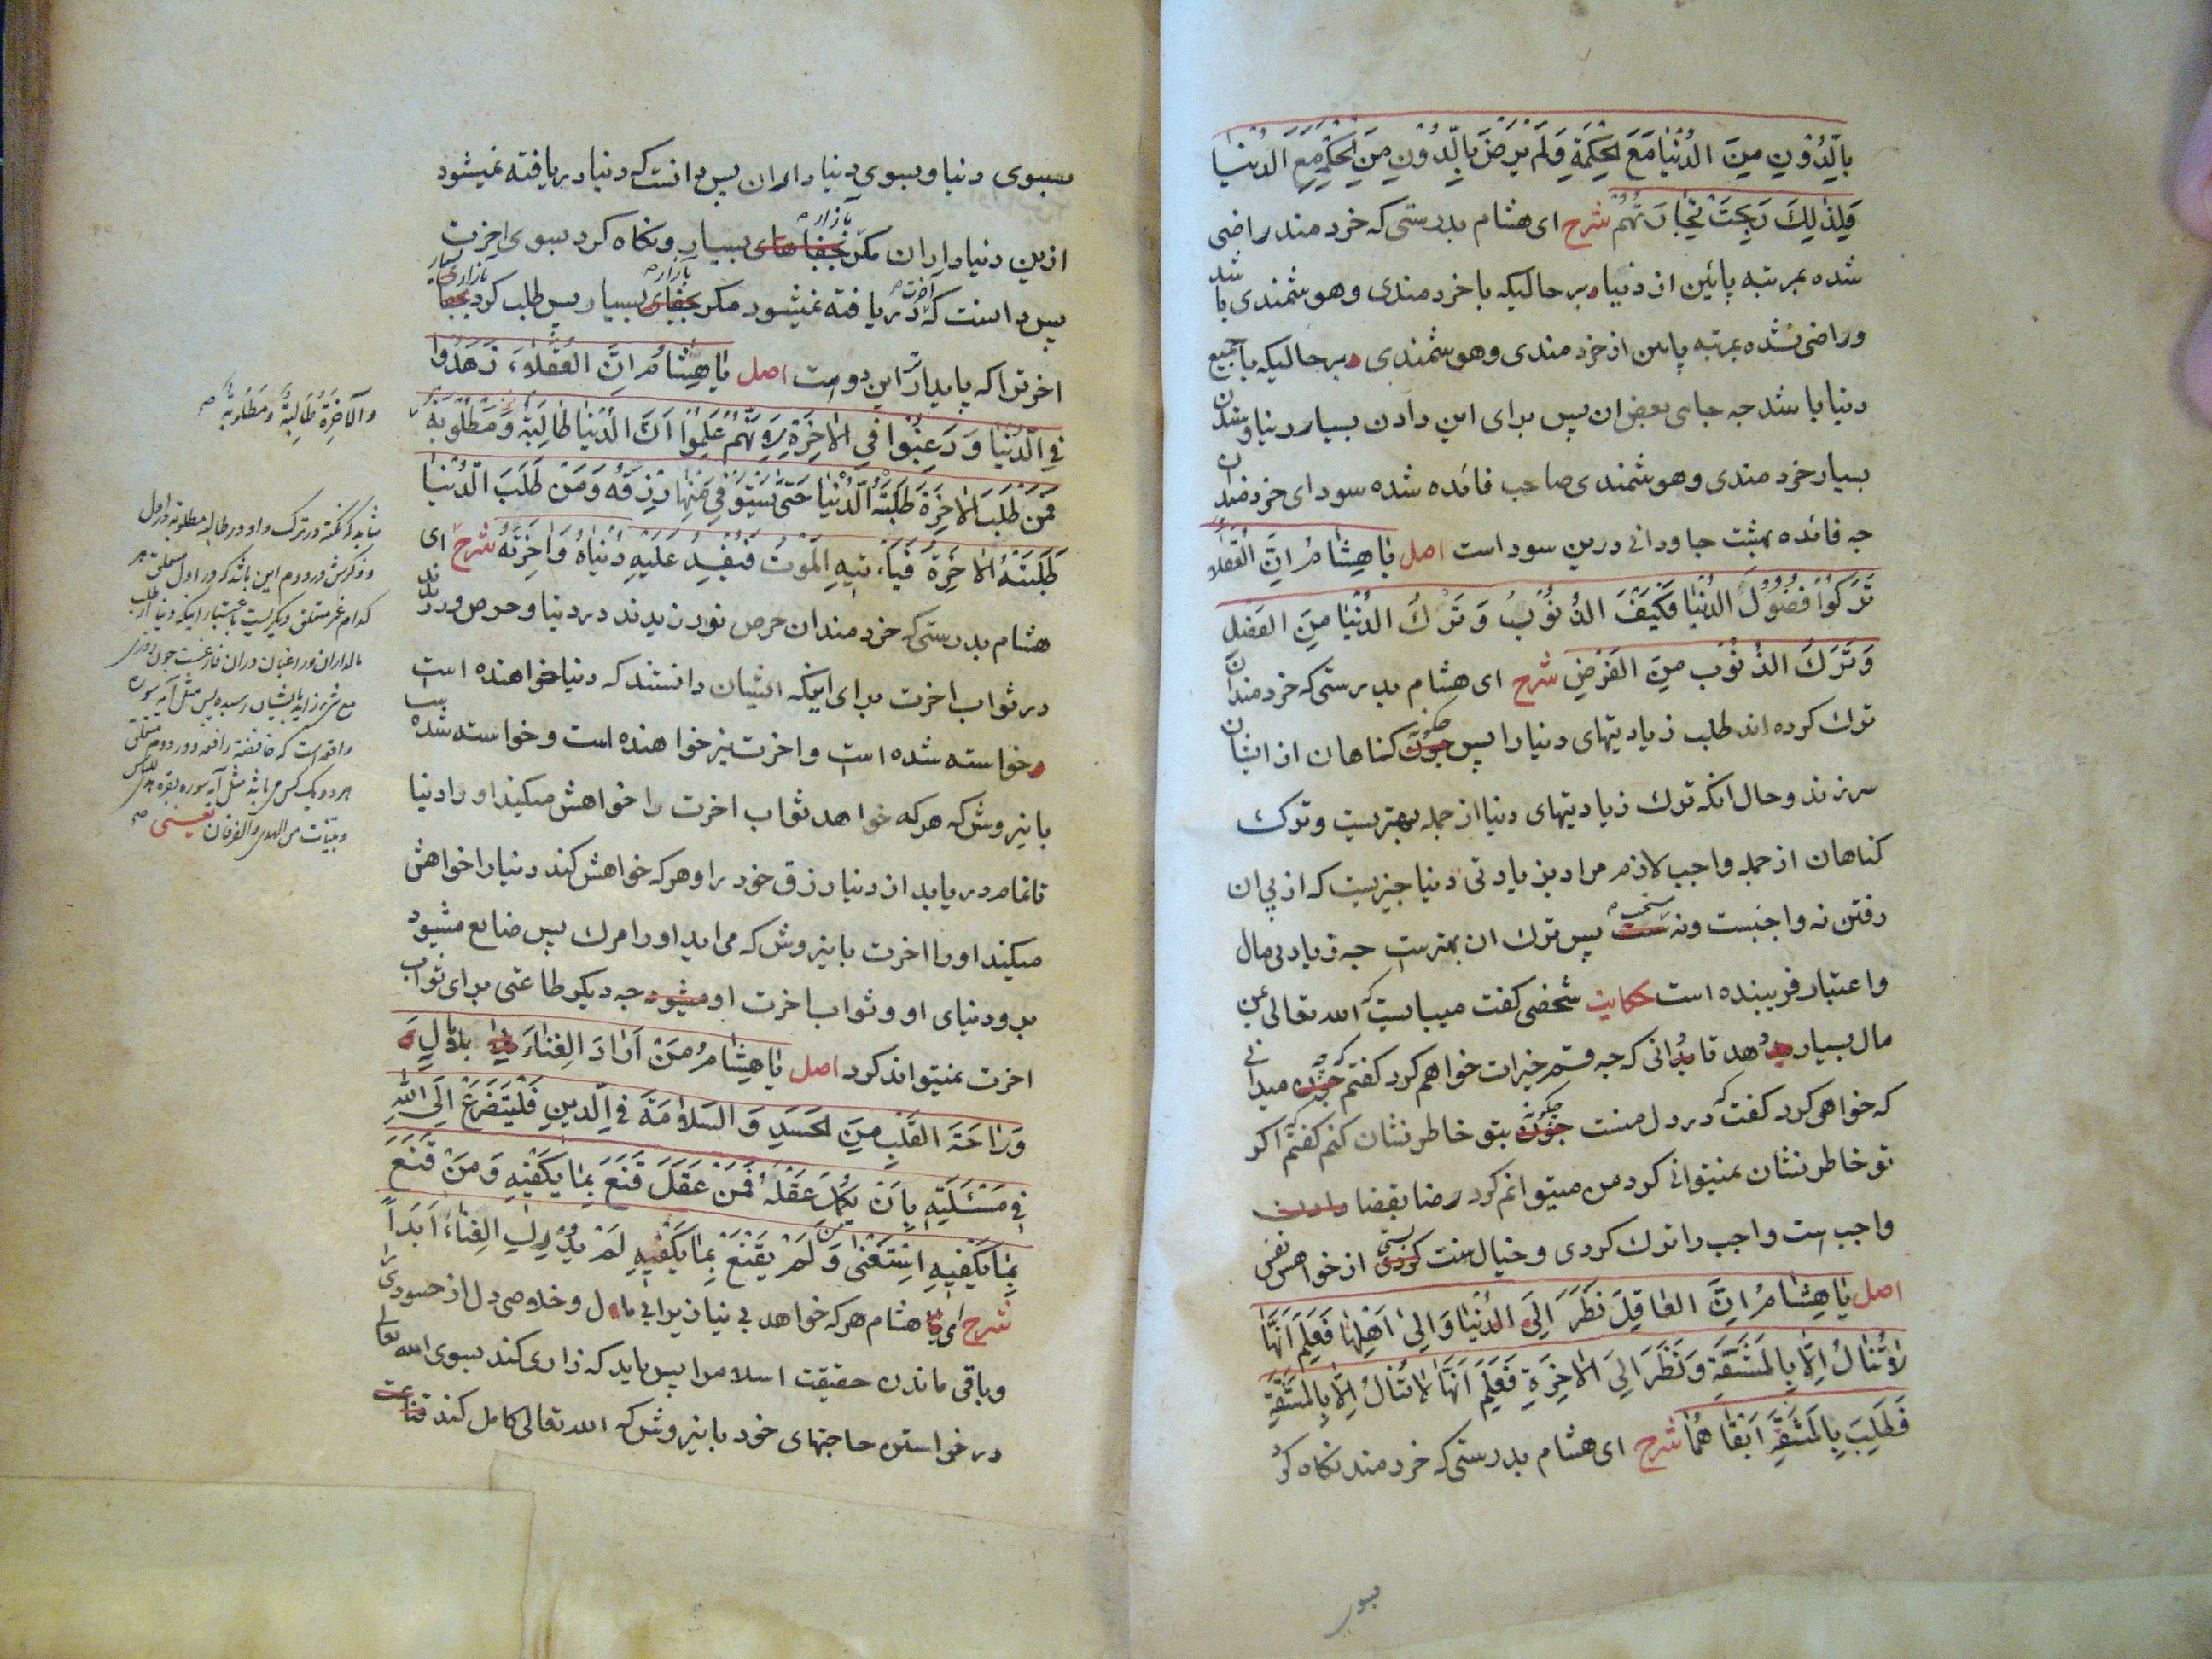 بِالدُّوْنِ مِنَ الدُّنْيَا مَعَ الحِكْمَةِ وَلَمْ يَرْضَ بِالدُّوْنِ مِنَ الحِكْمَةِ مَعَ الدنيا
فَلِذٰلِكَ رَبِحَتْ تِجَارَتُهُمْ شرح ای هشام بدرستی که خردمند راضی
شده بمرتبه پائین از دنیا بر حالیکه با خردمندی و هوشمندی باشد
و راضی نشده بمرتبه پایین از خردمندی و هوشمندی بر حالیکه با جمیع
دنیا باشد جه جای بعض ان پس برای این دادن بسیار دنیا و ستدن
بسیار خردمندی و هوشمندی صاحب فائده شده سودای خردمندان
جه فائده بهشت جاودانی درین سود است اصل یَا هِشَامُ اِنَّ العُقَلَاءَ
تَرَكُوْا فُضُوْلَ الدُّنْيَا فَكَيْفَ الذُّنُوْبُ وَتَرْكُ الدُّنْيَا مِنَ الفَضْلِ
وَتَرْكَ الذُّنُوْبِ مِنَ الفَرْضِ شرح ای هشام بدرستی که خردمندان
ترك کرده اند طلب زیادتیهای دنیا را پس چگونه کناهان از ایشان
سر زند و حال انکه ترك زیادیتهای دنیا از جمله بهتریست و ترك
کناهان از جمله واجب لازم مراد بزیادتی دنیا جیزیست که از پی ان
رفتن نه واجبست ونه مستحب پس ترك ان بهترست جه زیادتی مال
و اعتبار فریبنده است حکایت شخصی کفت میبایست که الله تعالی بمن
مال بسیار بدهد تا بدانی که جه قسم خیرات خواهم کرد کفتم که جه میدانی
که خواهی کرد کفت که در دل منست چگونه بتو خاطر نشان کنم کفتم که اکر
تو خاطر نشان نمیتوانی کرد من میتوانم کرد رضا بقضا دادن
واجب است واجب را ترك کردی و خیال سنت بستی از خواهش نفس
اصل یَا هِشَامُ اِنَّ العَاقِلَ نَظَرَ اِلَى الدُّنْيَا وَاِلىٰ اَهْلِهَا فَعَلِمَ اَنَّهَا
لَا تُنَالُ اِلَّا بِالمَشَقَّةِ وَنَظَرَ اِلَى الاٰخِرَةِ فَعَلِمَ اَنَّهَا لَا تُنَالُ اِلَّا بِالمَشَقَّةِ
فَطَلَبَ بِالمَشَقَّةِ اَبْقَاهُمَا شرح ای هشام بدرستی که خردمند نکاه کرد
بسوی
بسوی دنیا و بسوی دنیاداران پس دانست که دنیا دریافته نمیشود
ازین دنیاداران مکر بازار بسیار و نکاه کرد بسوی اخرت
پس دانست که اخرت دریافته نمیشود مکر بازار بسیار پس طلب کرد بازاری بسیار
اخرت را که پایدارتر این دو است اصل یَا هِشَامُ اِنَّ العُقَلَاءَ زَهَدُوْا
فِي الدُّنْيَا وَرَغِبُوْا فِي الاٰخِرَةِ لِاَنَّهُمْ عَلِمُوْا اَنَّ الدُّنْيَا طَالِبَةٌ وَمَطْلُوْبَةٌ
فَمَنْ طَلَبَ الاٰخِرَةَ طَلَبَتْهُ الدُّنْيَا حَتّٰى يَسْتَوْفِيَ مِنْهَا رِزْقَهُ وَمَنْ طَلَبَ الدُّنْيَا
طَلَبَتْهُ الاٰخِرَةُ فَيَاْتِيهِ المَوْتُ فَيُفْسِدُ عَلَيْهِ دُنْيَاهُ وَاٰخِرَتَهُ شرح ای
هشام بدرستی که خردمندان حرص نورزیدند در دنیا و حرص ورزیدند
در ثواب اخرت برای اینکه ایشان دانستند که دنیا خواهنده است
و خواسته شده است و اخرت نیز خواهنده است و خواسته شده
باینروش که هر که خواهد ثواب اخرت را خواهش میکند او را دنیا
تا تمام دریابد از دنیا رزق خود را و هر که خواهش کند دنیا را خواهش
میکند او را اخرت باینروش که می اید او را مرك پس ضایع میشود
برو دنیای او و ثواب اخرت او جه دیکر طاعتی برای ثواب
اخرت نمیتواند کرد اصل یَا هِشَامُ مَنْ اَرَادَ الغِنَاءَ بِلَا مَالٍ
وَرَاحَةَ القَلْبِ مِنَ الحَسَدِ وَالسَّلَامَةَ فِي الدِّينِ فَلْيَتَضَرَّعْ اِلَى اللهِ
فِي مَسْئَلَتِهِ بِاَنْ يُكْمِلَ عَقْلَهُ فَمَنْ عَقَلَ قَنَعَ بِمَا يَكْفِيْهِ وَمَنْ قَنَعَ
بِمَا يَكْفِيهِ اسْتَغْنٰى وَمَنْ لَمْ يَقْنَعْ بِمَا يَكْفِيهِ لَمْ يُدْرِكِ الغِنَاءَ اَبَداً
شرح ای هشام هر که خواهد بی نیازی را بی مال و خلاصی دل از حسودی را
و باقی ماندن حقیقت اسلام را پس باید که زاری کند بسوی الله تعالی
در خواستن حاجتهای خود باینروش که الله تعالی کامل کند
وَالآخِرَةُ طَالِبَةٌ وَمَطْلُوبَةٌ